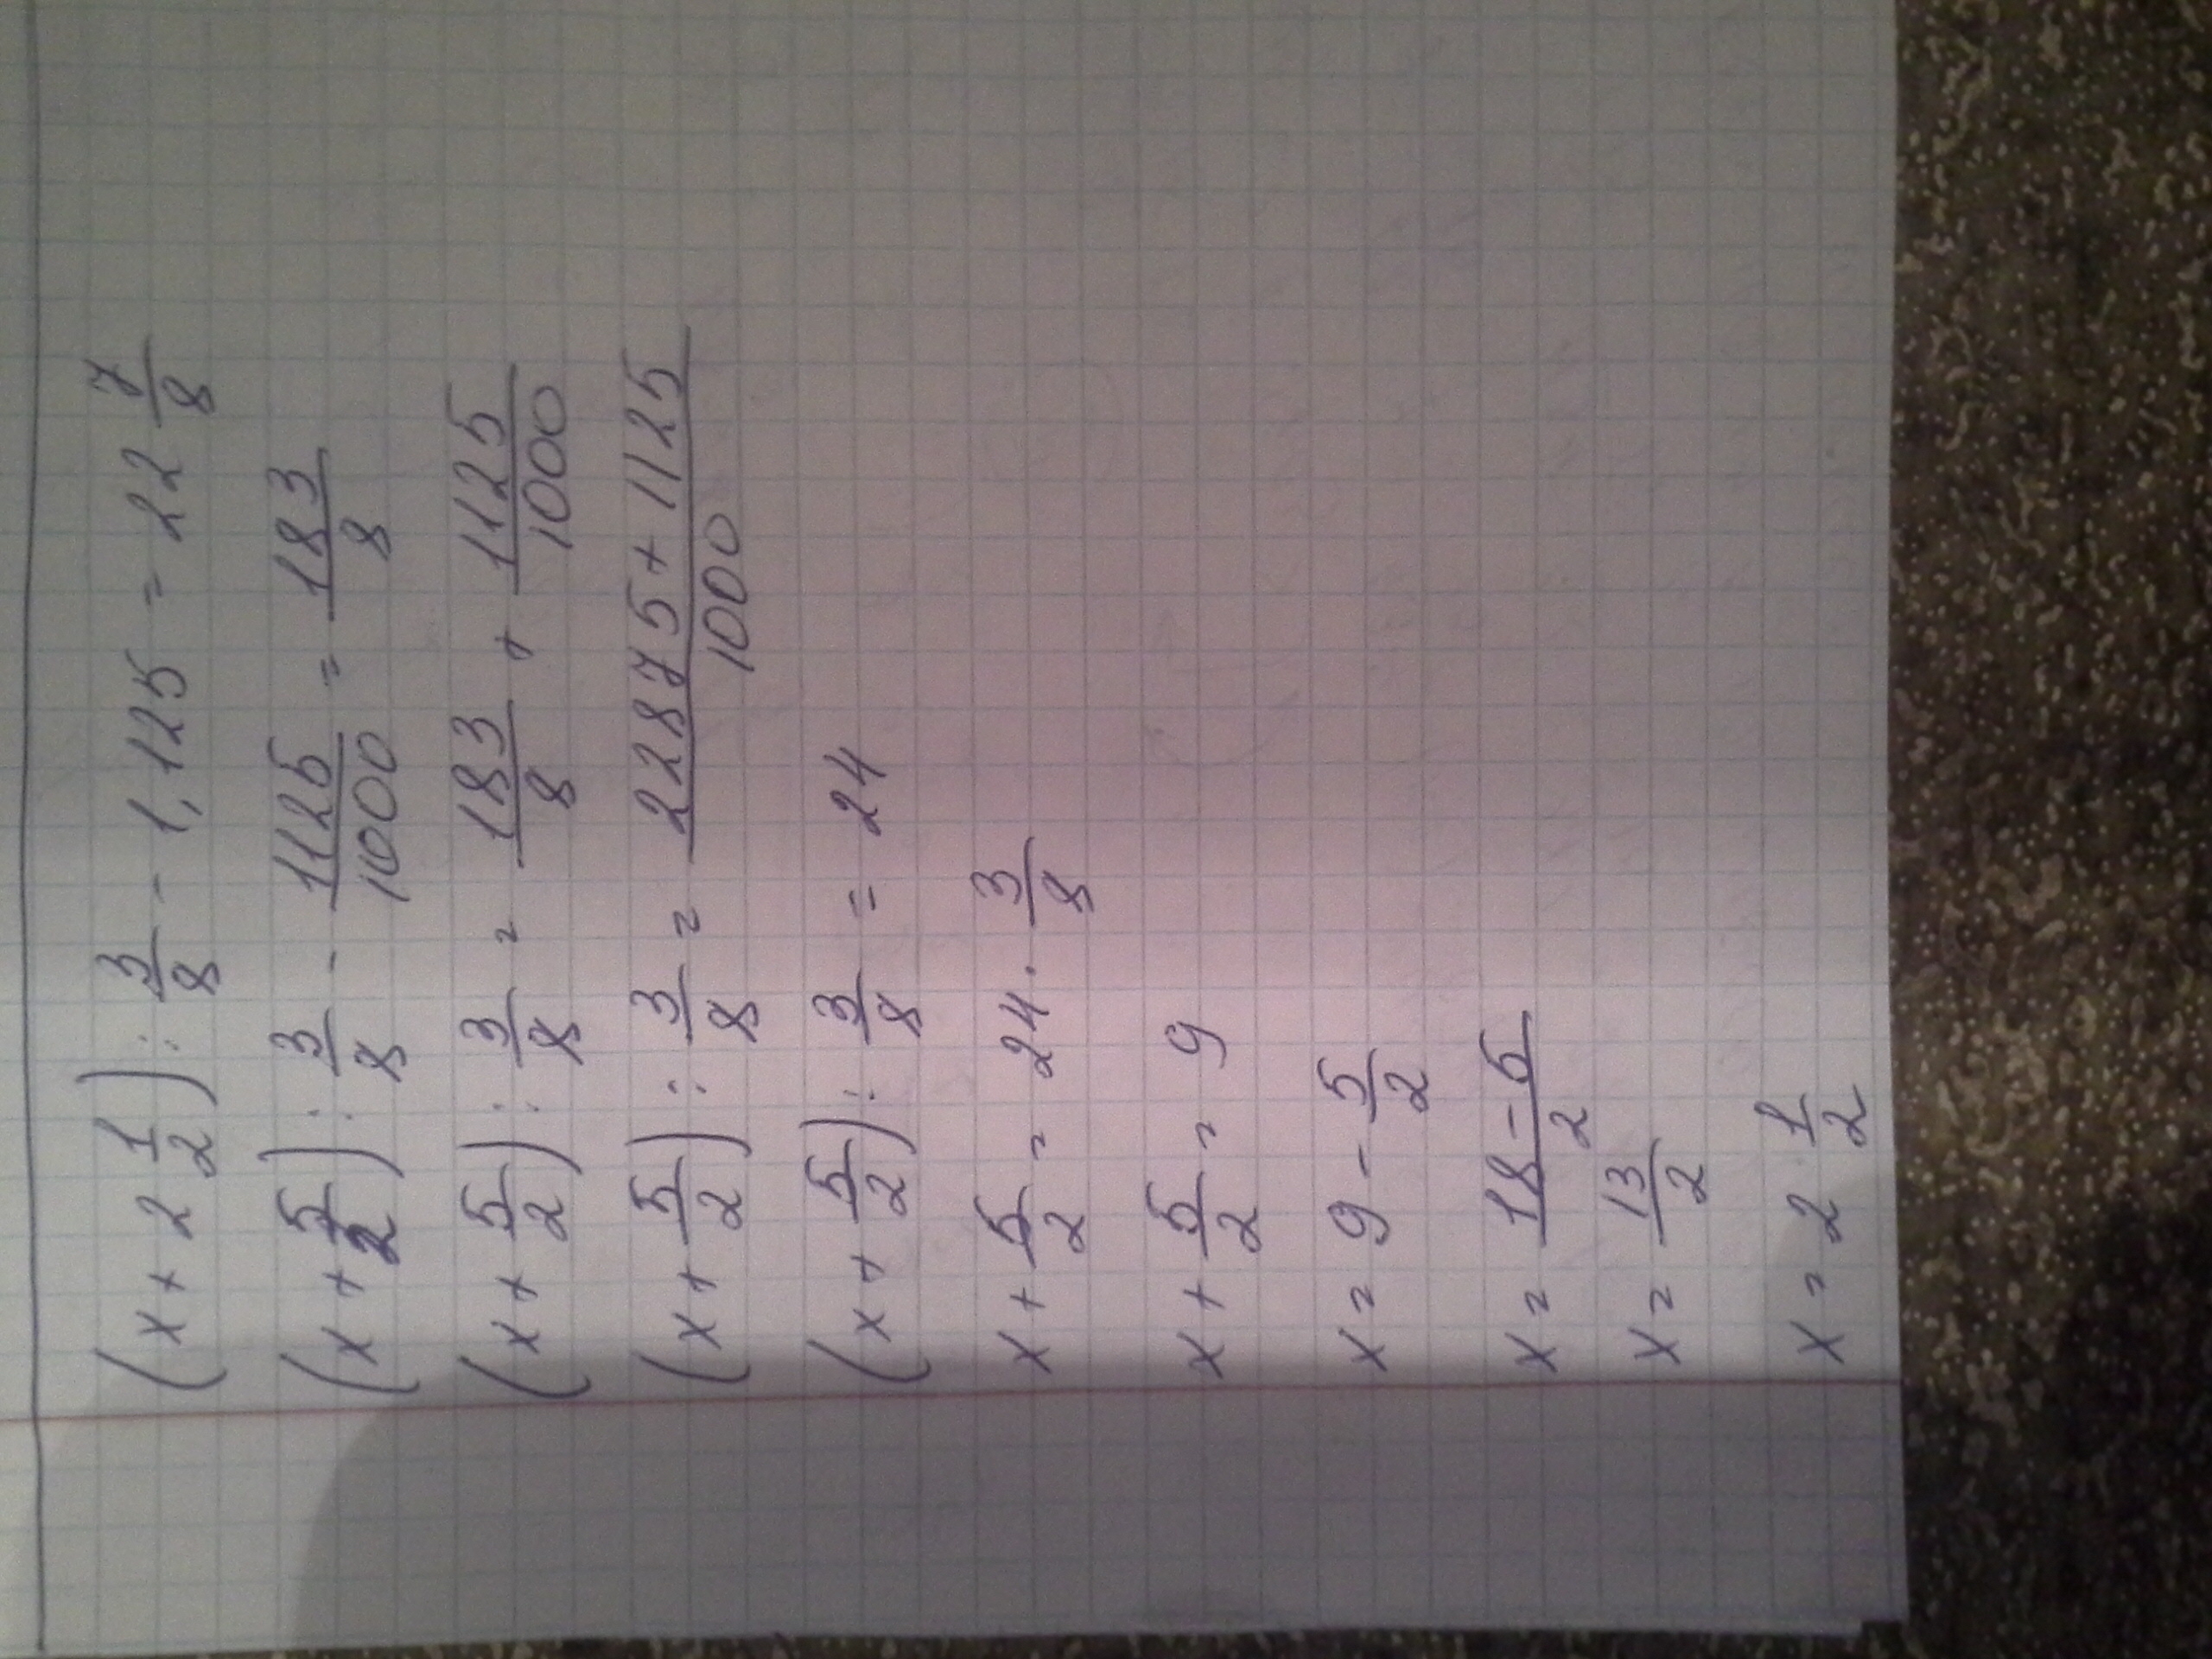 (x + 2 1/2) : 3/8 - 1,125 = 22 7/8
(x + 5/2) : 3/8 - 1125/1000 = 183/8
(x + 5/2) : 3/8 = 183/8 + 1125/1000
(x + 5/2) : 3/8 = 22875 + 1125/1000
(x + 5/2) : 3/8 = 24
x + 5/2 = 24 · 3/8
x + 5/2 = 9
x = 9 - 5/2
x = 18 - 5/2
x = 13/2
x = 2 1/2